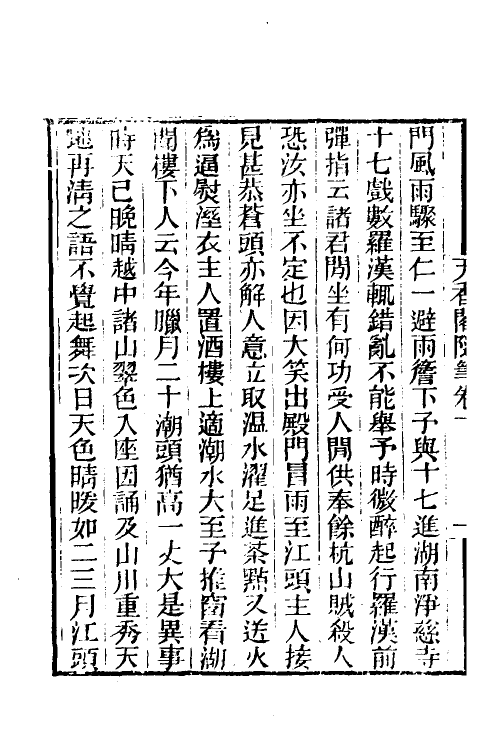 門風雨驟至仁一避雨簷下予與十七進湖南淨慈寺
十七戲數羅漢輒錯亂不能舉予時微醉起行羅漢前
彈指云諸君閒坐有何功受人閒供奉餘杭山賊殺人
恐汝亦坐不定也因大笑出殿門冒雨至江頭主人接
見甚恭蒼頭亦解人意立取溫水濯足進茶點又送火
爲逼熨溼衣主人置酒樓上適潮水大至予推窗看湖
聞樓下人云今年臘月二十潮頭猶高一丈大是異事
時天已晚晴越中諸山翠色入座因誦及山川重秀天
地再清之語不覺起舞次日天色晴暖如二三月江頭
天香閣隨筆卷一